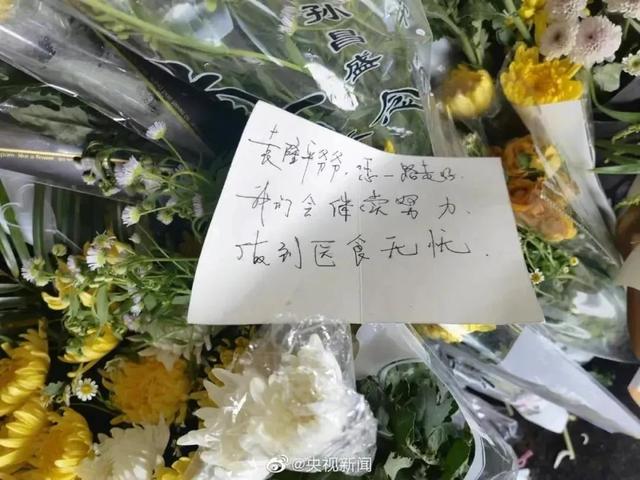 孙昌盛
袁隆平爷爷,您一路走好.
我们会继续努力
做到医食无忧.
@央视新闻